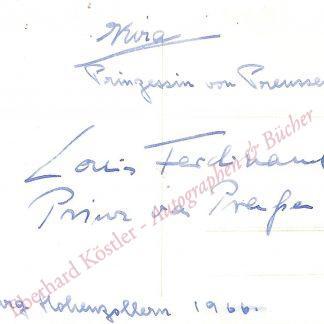 Kira
Prinzessin von Preusse
Louis Ferdinand
Prinz von Preußen
urg Hohenzollern 1966
Eberhard Köstler - Autographen & Bücher